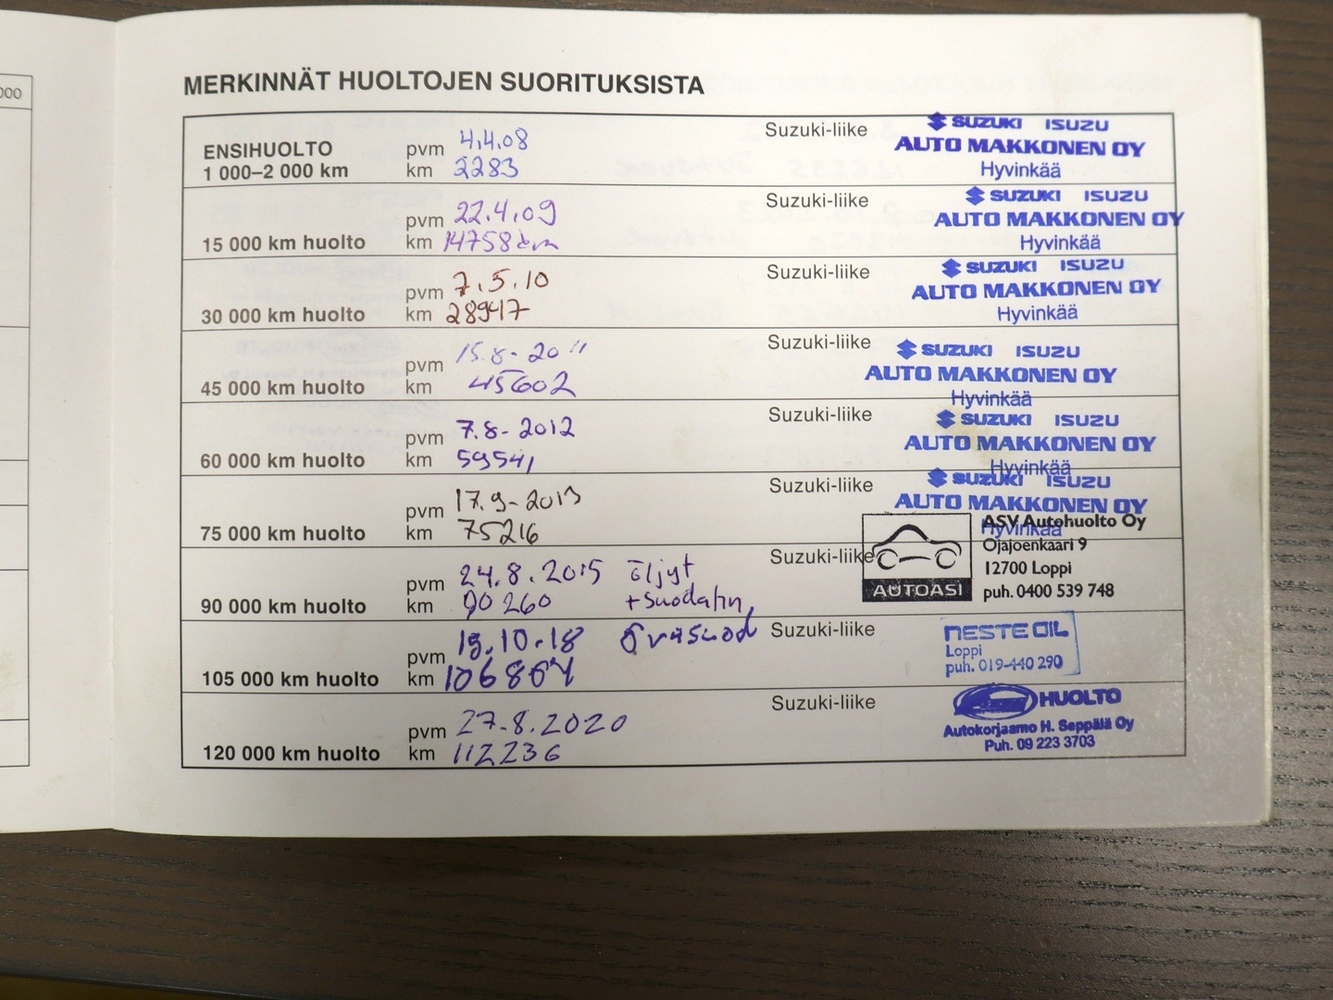 000
MERKINNÄT HUOLTOJEN SUORITUKSISTA
ENSIHUOLTO
1 000–2 000 km
pvm 4.4.08
km 2283
Suzuki-liike
SUZUKI ISUZU
AUTO MAKKONEN OY
Hyvinkää
15 000 km huolto
pvm 22.4.09
km 14758 km
Suzuki-liike
SUZUKI ISUZU
AUTO MAKKONEN OY
Hyvinkää
30 000 km huolto
pvm 7.5.10
km 28947
Suzuki-liike
SUZUKI ISUZU
AUTO MAKKONEN OY
Hyvinkää
45 000 km huolto
pvm 15.8-2011
km 45602
Suzuki-liike
SUZUKI ISUZU
AUTO MAKKONEN OY
Hyvinkää
60 000 km huolto
pvm 7.8-2012
km 59541
Suzuki-liike
SUZUKI ISUZU
AUTO MAKKONEN OY
Hyvinkää
75 000 km huolto
pvm 17.9-2013
km 75216
Suzuki-liike
SUZUKI ISUZU
AUTO MAKKONEN OY
Hyvinkää
90 000 km huolto
pvm 24.8.2015 öljyt
km 90260 +suodatin
Suzuki-liike
AUTOASI
ASV Autohuolto Oy
Ojajoenkaari 9
12700 Loppi
puh. 0400 539 748
105 000 km huolto
pvm 19.10.18
km 106864
Suzuki-liike
NESTE OIL
Loppi
puh. 019-440 290
120 000 km huolto
pvm 27.8.2020
km 112236
Suzuki-liike
HUOLTO
Autokorjaamo H. Seppälä Oy
Puh. 09 223 3703